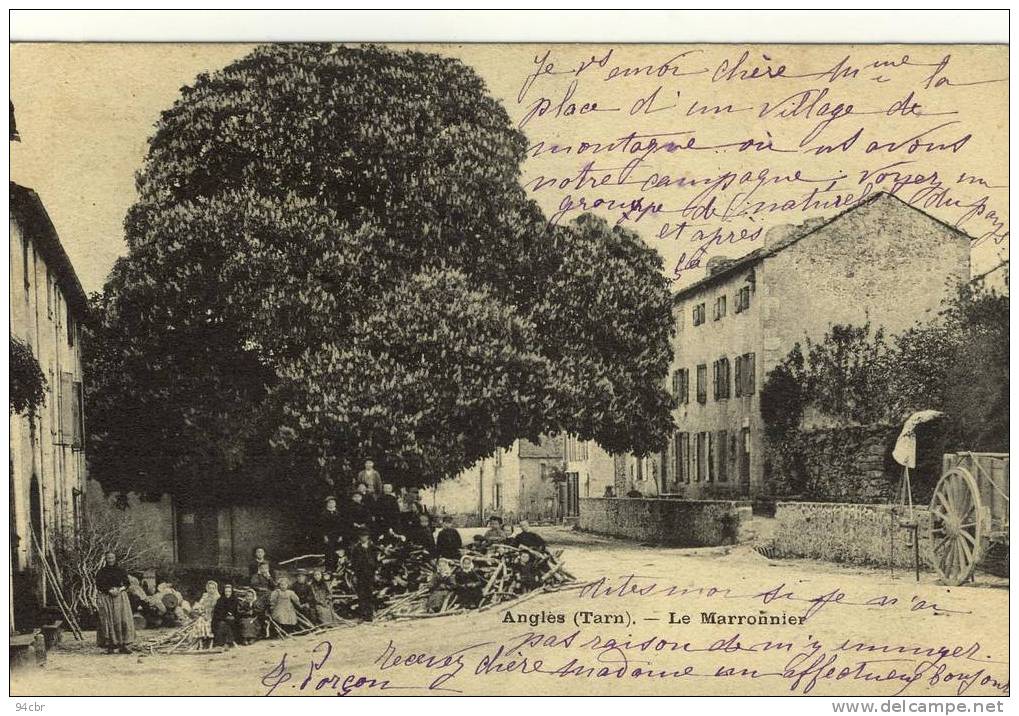 Je vs envoi chère Mme la
place d'un village de
montagne où ns avons
notre campagne, voyez un
groupe de naturels du pays
et après
ça
dites moi si je n'ai
Anglès (Tarn). — Le Marronnier
pas raison de m'y ennuyer.
recevez chère madame un affectueux bonjour
L. Porçon
94cbr
www.delcampe.net